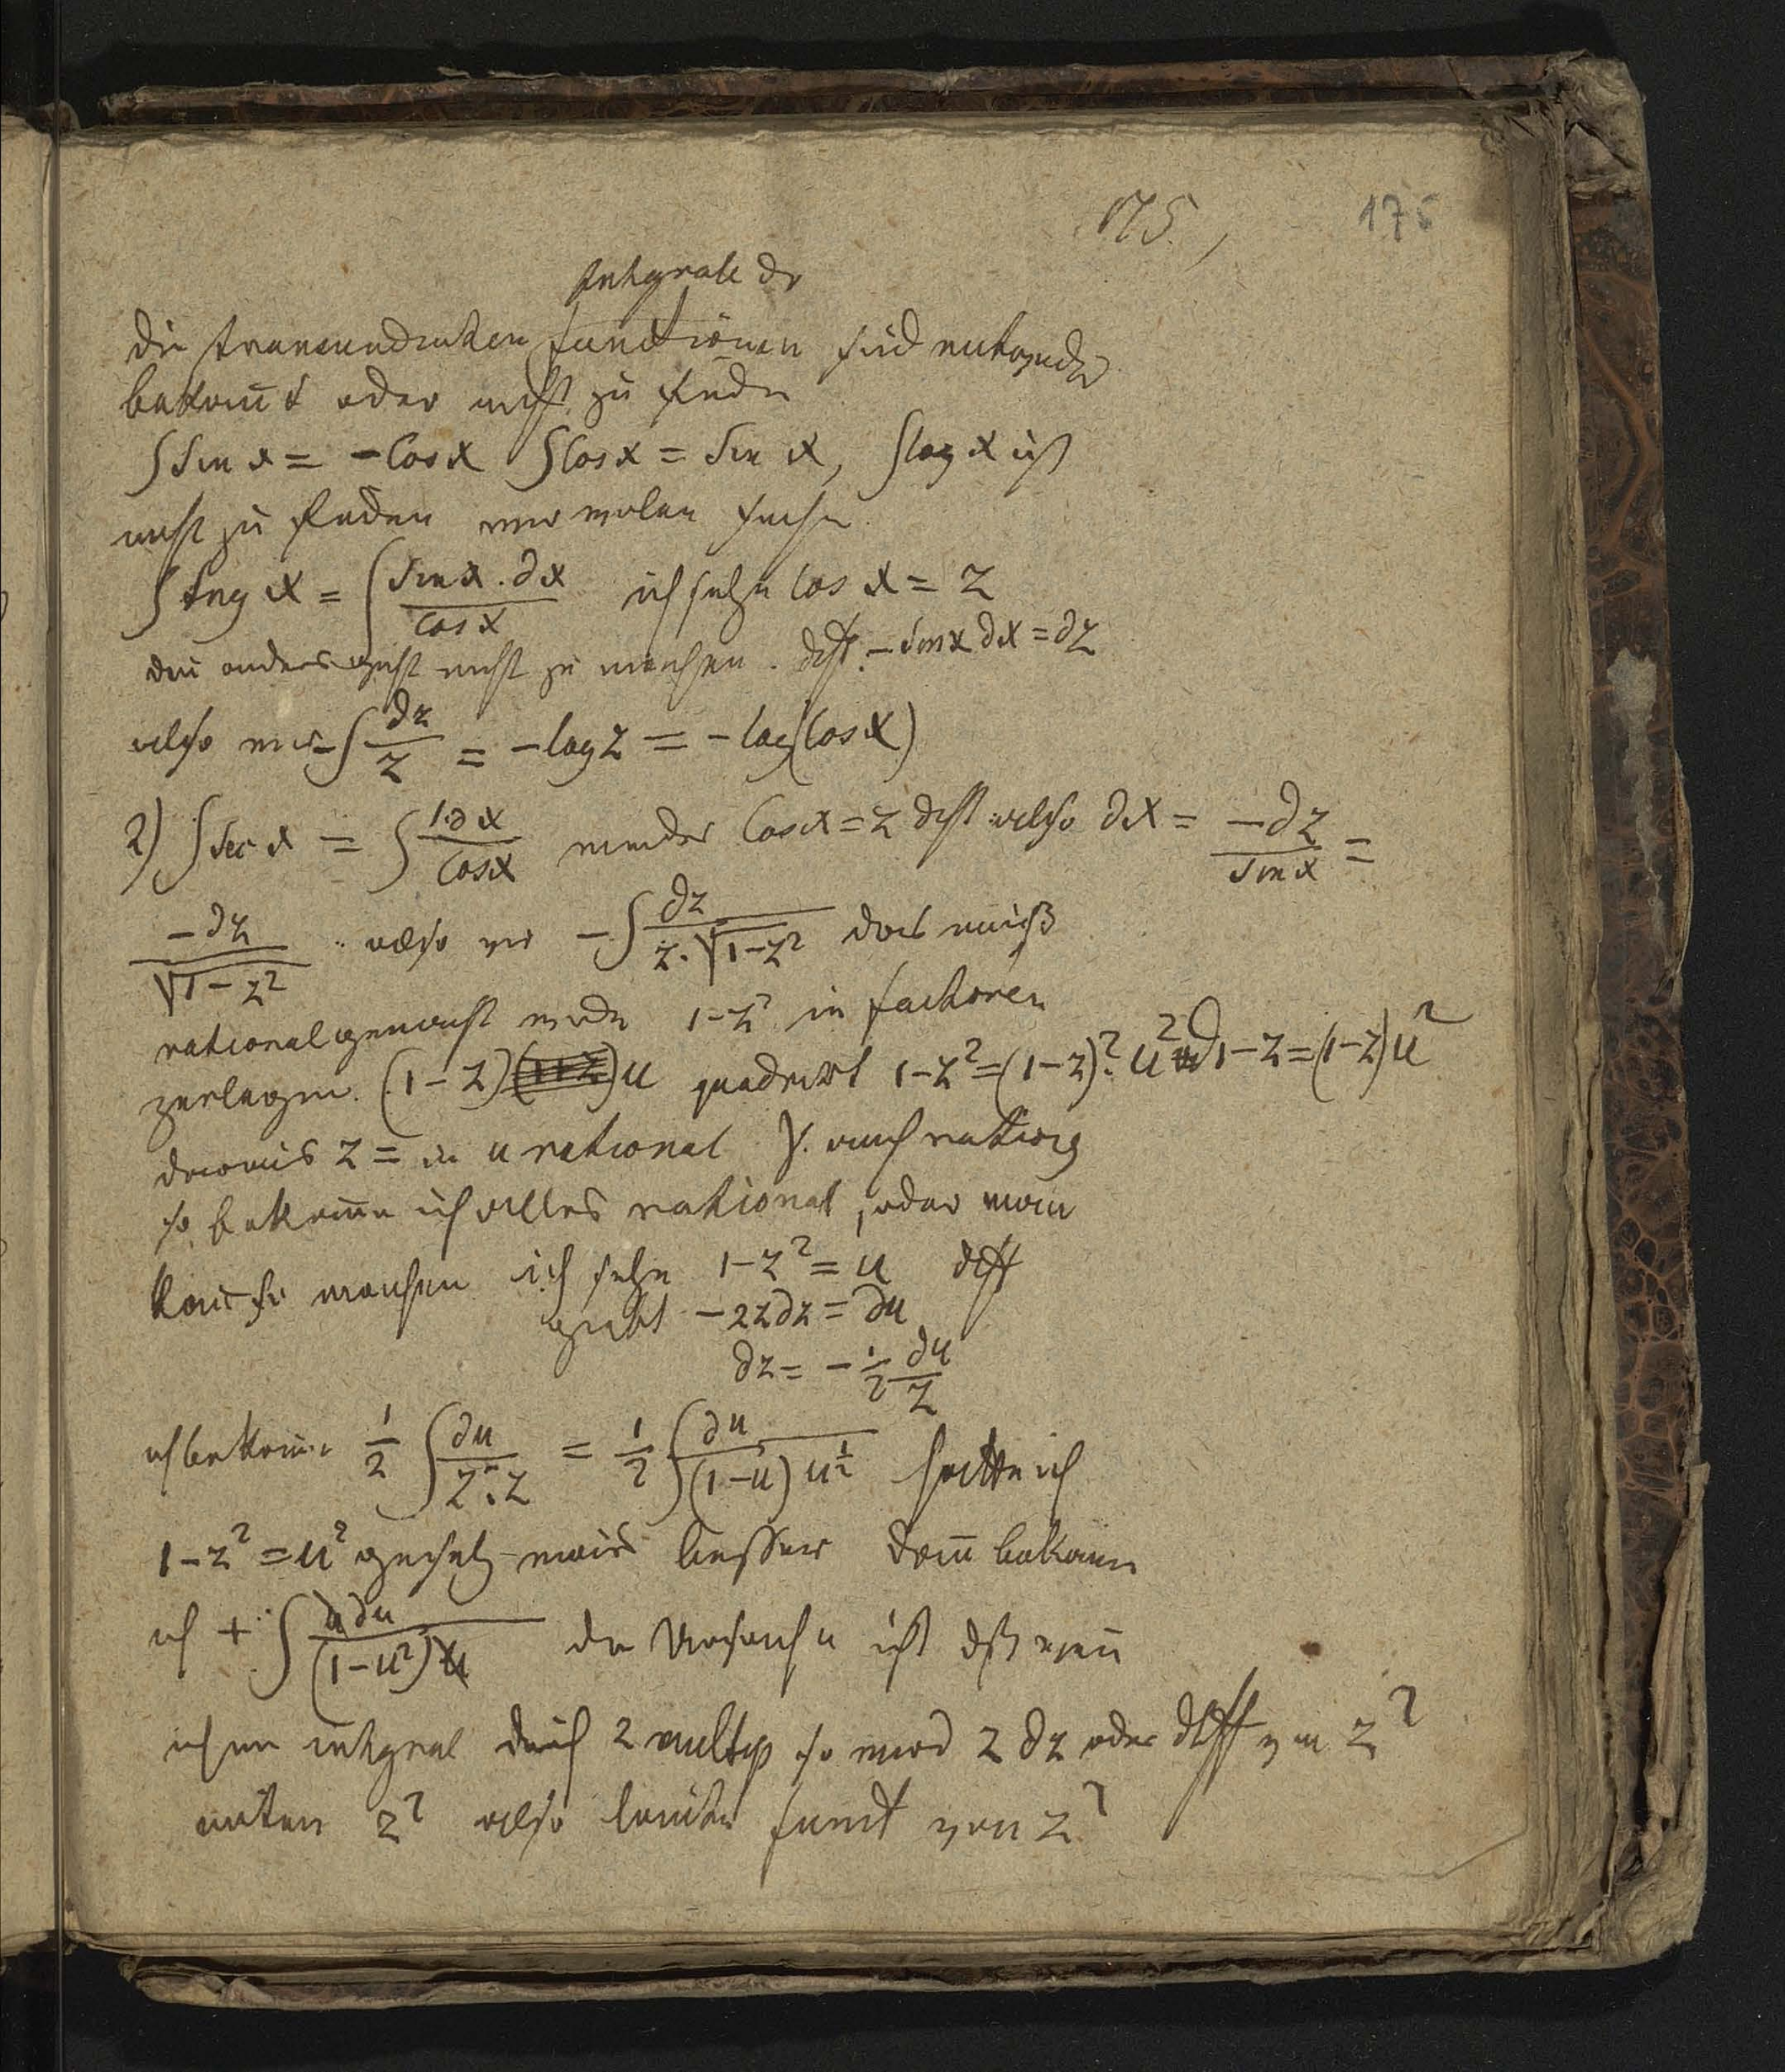 175.
175
Integrale der
die transcendenten functionen sind entweder
bekannt oder nicht zu finden
∫ Sin x = - Cos x ∫ Cos x = Sin x, ∫ log x ist
nicht zu finden wir wollen suchen
∫ tng x = ∫ Sin x . ∂x / Cos x ich setze Cos x = z
den anders geht nicht zu machen . diff. - Sin x ∂x = ∂z
also - ∫ ∂z / z = - log z = - log (Cos x)
2) ∫ Sec x = ∫ 1.∂x / Cos x wieder Cos x = z diff also ∂x = -∂z / Sin x =
-∂z / √1-z² also - ∫ ∂z / z.√1-z² das muß
rational gemacht werden 1-z² in factoren
zerlegen. (1-z) u quadrirt 1-z² = (1-z)². u² 1-z = (1-z) u²
daraus z = in u rational
so bekomme ich alles rational, oder man
kann so machen ich setze 1-z² = u diff
giebt -2z∂z = ∂u
∂z = - 1/2 ∂u / z
ich bekomme 1/2 ∫ ∂u / z².z = 1/2 ∫ ∂u / (1-u) u^1/2 hätte ich
1-z² = u² gesetzt besser dann bekomm
ich + ∫ u∂u / (1-u²) u die Ursache ist daß wenn
ich im integral durch z multip so wird z ∂z oder diff von z²
unten z² also lauter funct von z²